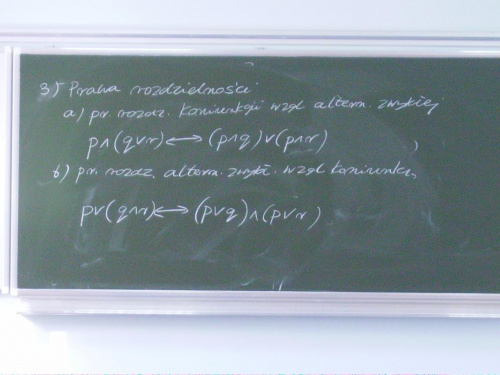 3) Prawa rozdzielności
a) pr. rozdz. koniunkcji wzgl altern. zwykłej
p∧(q∨r)⟷(p∧q)∨(p∧r)
b) pr. rozdz. altern. zwykł. wzgl koniunkcji
p∨(q∧r)⟷(p∨q)∧(p∨r)